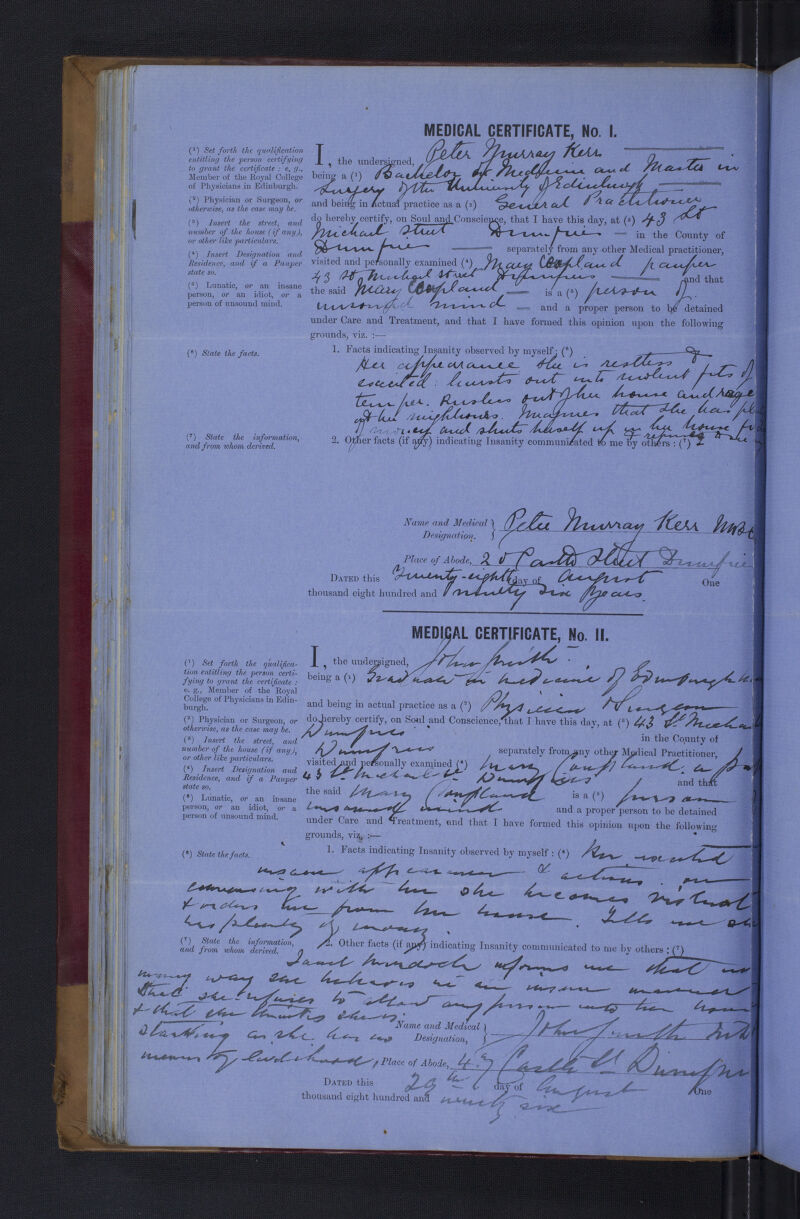 MEDICAL CERTIFICATE, No. I.
(¹) Set forth the qualification
entitling the person certifying
to grant the certificate : e. g.,
Member of the Royal College
of Physicians in Edinburgh.
(²) Physician or Surgeon, or
otherwise, as the case may be.
(³) Insert the street, and
number of the house (if any),
or other like particulars.
(⁴) Insert Designation and
Residence, and if a Pauper
state so.
(⁵) Lunatic, or an insane
person, or an idiot, or a
person of unsound mind.
I, the undersigned, Peter Murray Kerr
being a (¹) Bachelor of Medicine and Master in
Surgery of the University of Edinburgh
and being in actual practice as a (²) General Practitioner
do hereby certify, on Soul and Conscience, that I have this day, at (³) 43 St
Michael Street Dumfries in the County of
Dumfries separately from any other Medical practitioner,
visited and personally examined (⁴) Mary Coupland pauper
43 St Michael Street Dumfries and that
the said Mary Coupland is a (⁵) person of
unsound mind and a proper person to be detained
under Care and Treatment, and that I have formed this opinion upon the following
grounds, viz. :—
(⁶) State the facts.
1. Facts indicating Insanity observed by myself : (⁶)
Her appearance she is restless &
excited : bursts out into violent fits of
temper. Rushes out of her house and rages
at her neighbours. Imagines that she has
of money and shuts herself up in her house
(⁷) State the information,
and from whom derived.
2. Other facts (if any) indicating Insanity communicated to me by others : (⁷)
Name and Medical
Designation, Peter Murray Kerr
Place of Abode, Castle Street Dumfries
DATED this Twenty-eighth day of August One
thousand eight hundred and ninety six years.
MEDICAL CERTIFICATE, No. II.
(¹) Set forth the qualifica-
tion entitling the person certi-
fying to grant the certificate :
e. g., Member of the Royal
College of Physicians in Edin-
burgh.
(²) Physician or Surgeon, or
otherwise, as the case may be.
(³) Insert the street, and
number of the house (if any),
or other like particulars.
(⁴) Insert Designation and
Residence, and if a Pauper
state so.
(⁵) Lunatic, or an insane
person, or an idiot, or a
person of unsound mind.
I, the undersigned, John Smith
being a (¹) Graduate in medicine of Edinburgh
and being in actual practice as a (²) Physician & Surgeon
do hereby certify, on Soul and Conscience, that I have this day, at (³) 43 St Michael
Dumfries in the County of
Dumfries separately from any other Medical Practitioner,
visited and personally examined (⁴) Mary Coupland, a
43 St Michael St Dumfries and that
the said Mary Coupland is a (⁵) person
unsound mind and a proper person to be detained
under Care and Treatment, and that I have formed this opinion upon the following
grounds, viz. :—
(⁶) State the facts.
1. Facts indicating Insanity observed by myself : (⁶) Her excited
insane appearance & actions. on
conversing with her she becomes violent
& orders me from her house. Tells me she
has plenty of money
(⁷) State the information,
and from whom derived.
2. Other facts (if any) indicating Insanity communicated to me by others : (⁷)
Janet Murdoch informs me that in
many way she behaves in an insane manner
that she refuses to allow any person into her house
& that she thinks she is
starving as she has no
means of livelihood,
Name and Medical
Designation, John Smith
Place of Abode, Castle St Dumfries
DATED this 29th day of August One
thousand eight hundred and ninety six